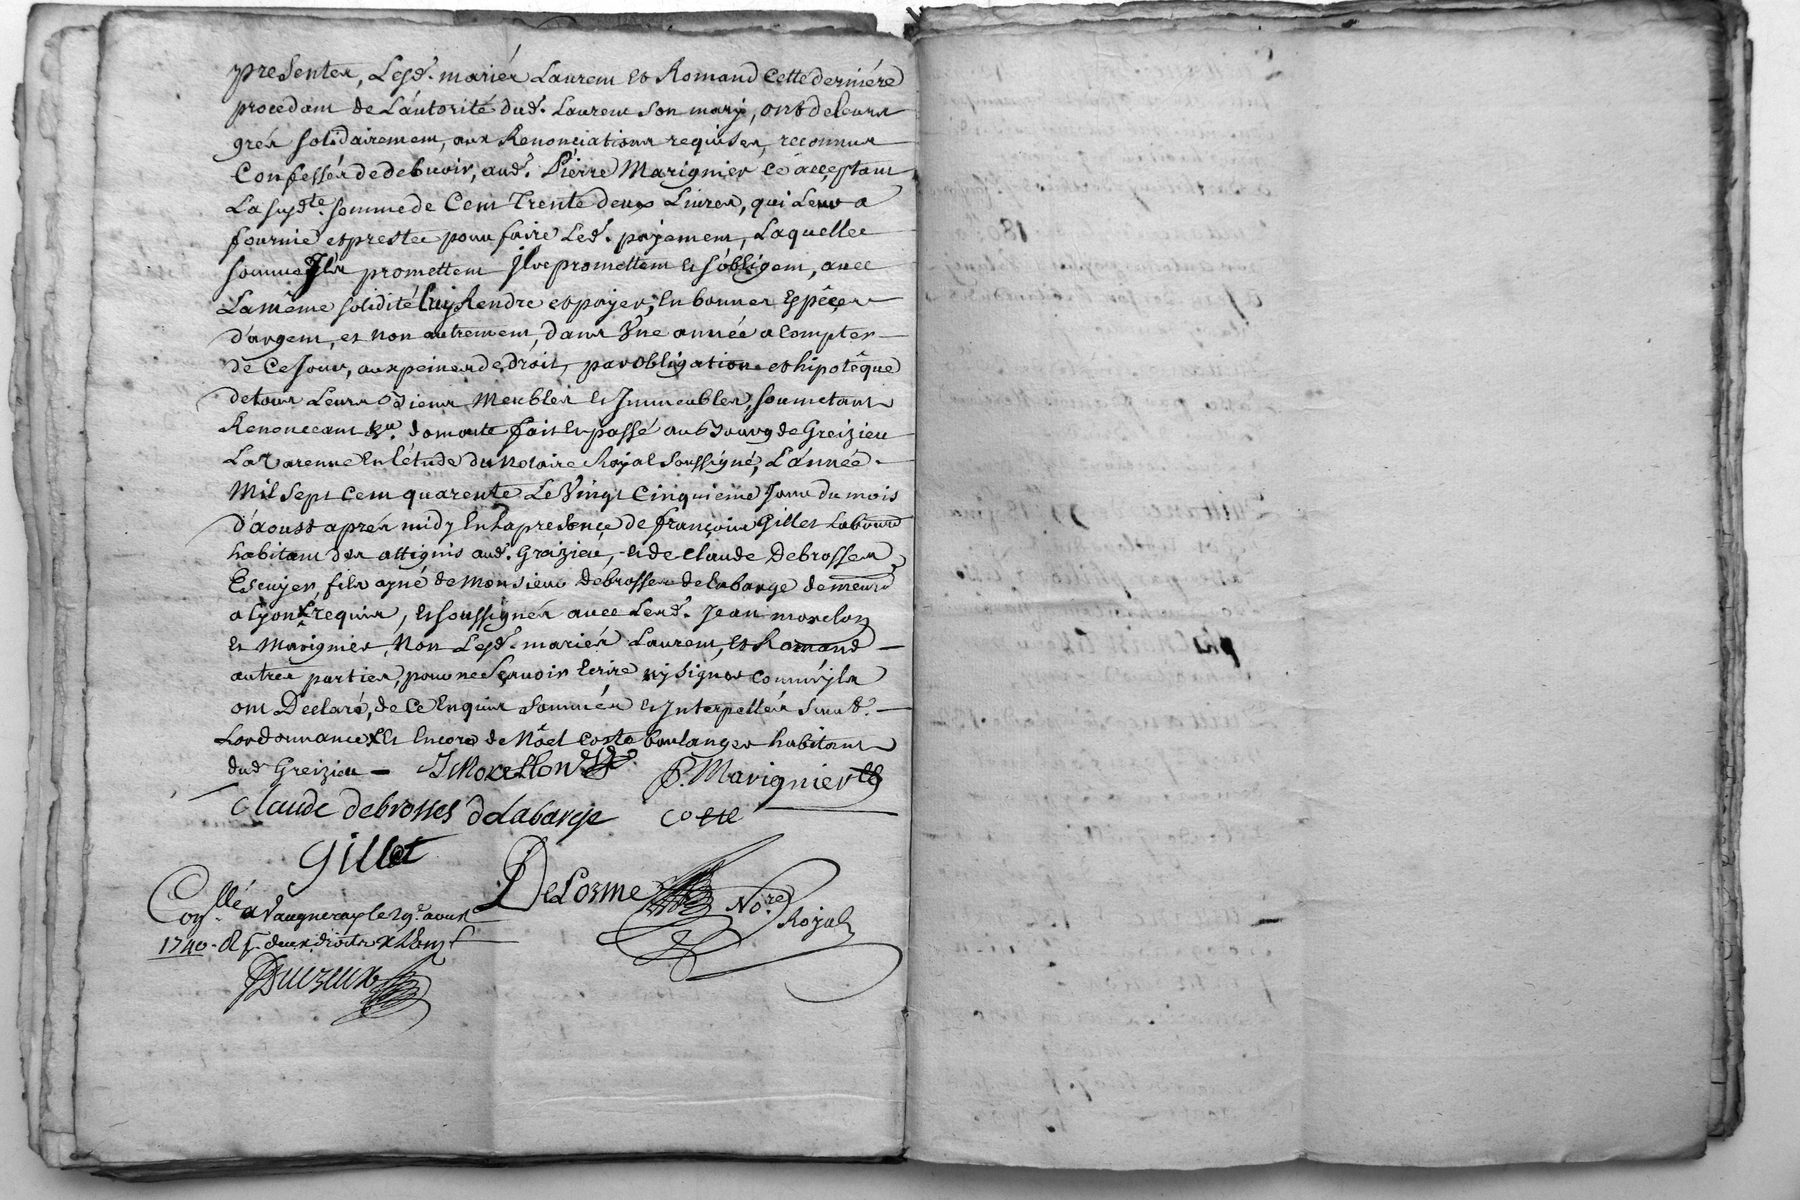 presentes, Lesd. mariés Laurent et Romand cette derniére
procedant de L'autorité dud. Laurent son mary, ont de leurs
grés solidairement, aux Renonciations requises, reconnus
Confessés de debvoir, aud. Pierre Marignier ce acceptant
La susdte. somme de Cent Trente deux Livres, qui Leur a
fournie et prestée pour faire Led. payement, Laquelle
somme Ils promettent Ils promettent et s'obligent, avec
La même solidité luy Rendre et payer, en bonnes Espêces
d'argent, et non autrement, dans Une année a compter
de Ce Jour, aux peines de droit, par obligation et hipotêque
de tous Leurs Biens Meubles et Immeubles, soumettant
Renonceant &a. domoute fait et passé au bourg de Greizieu
La Varenne En l'étude du Notaire Royal soussigné, L'année
Mil sept cent quarente Le Vingt Cinquieme Jour du mois
d'aoust aprés midy En la presence de françois Gillet Laboureur
habitant des attignis aud. Greizieu, et de Claude Debrosses
Escuyer, fils ayné de Monsieur debrosses de Labarge demeurt
a Lyon x requis, et soussignés avec Lesd. Jean morelon
et Marignier, Non Lesd. mariés Laurent, et Romand
autres parties, pour ne sçavoir Ecrire ny signer comm'ils
ont Declaré, de Ce Enquis sommés et Interpellés suivt.
Lordonnance x et Encore de Nöel Coste boulanger habitant
dud Greizieu — J Morellon P. Marignier
Claude debrosses delabarge Coste
Gillet
DeLorme Nore. Royal
Conllé a Vaugneray le 29e. aoust
1740. R